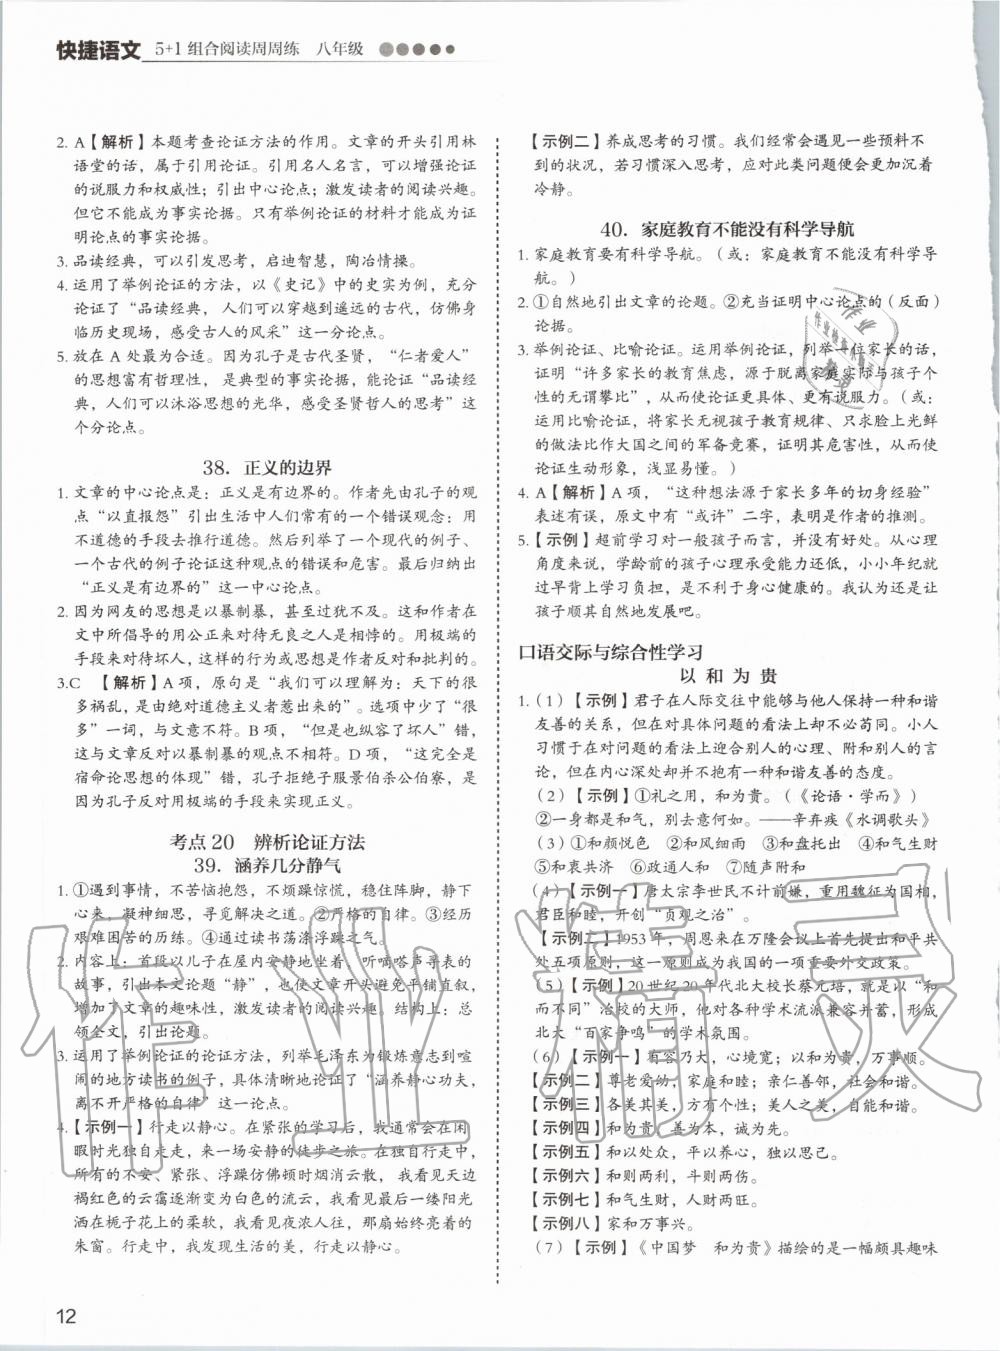 快捷语文 5+1组合阅读周周练 八年级
2. A【解析】本题考查论证方法的作用。文章的开头引用林
语堂的话，属于引用论证。引用名人名言，可以增强论证
的说服力和权威性；引出中心论点；激发读者的阅读兴趣。
但它不能成为事实论据。只有举例论证的材料才能成为证
明论点的事实论据。
3. 品读经典，可以引发思考，启迪智慧，陶冶情操。
4. 运用了举例论证的方法，以《史记》中的史实为例，充分
论证了“品读经典，人们可以穿越到遥远的古代，仿佛身
临历史现场，感受古人的风采”这一分论点。
5. 放在 A 处最为合适。因为孔子是古代圣贤，“仁者爱人”
的思想富有哲理性，是典型的事实论据，能论证“品读经
典，人们可以沐浴思想的光华，感受圣贤哲人的思考”这
个分论点。
38. 正义的边界
1. 文章的中心论点是：正义是有边界的。作者先由孔子的观
点“以直报怨”引出生活中人们常有的一个错误观念：用
不道德的手段去推行道德。然后列举一个现代的例子、一
个古代的例子论证这种观念的错误和危害。最后归纳出
“正义是有边界的”这一中心论点。
2. 因为网友的思想是以暴制暴，甚至过犹不及。这和作者在
文中所倡导的用公正来对待无良之人是相悖的。用极端的
手段来对待坏人，这样的行为我们应该反对和批判的。
3.C 【解析】A 项，原句是“我们可以理解为：天下的很
多祸乱，是由绝对道德主义者惹出来的”。选项中少了“很
多”一词，与文意不符。B 项，“但是也纵容了坏人”错，
这与文章反对以暴制暴的观点不相符。D 项，“这完全是
宿命论思想的体现”错，孔子拒绝子服景伯杀公伯寮，是
因为孔子反对用极端的手段来实现正义。
考点 20 辨析论证方法
39. 涵养几分静气
1. ①遇到事情，不苦恼抱怨，不烦躁惊慌，稳住阵脚，静下
心来，凝神细思，寻觅解决之道。②严格的自律。③经历
艰难困苦的历练。④通过读书荡涤浮躁之气。
2. 内容上：首段以儿子在屋内安静地坐着、听嘀嗒声寻表的
故事，引出本文论题“静”，也使文章开头避免平铺直叙，
增加了文章的趣味性，激发了读者的阅读兴趣。结构上：总
领全文，引出论题。
3. 运用了举例论证的论证方法，列举毛泽东为锻炼意志到喧
闹的地方读书的例子，具体清晰地论证了“涵养静心功夫，
离不开严格的自律”这一论点。
4. 【示例一】行走以静心。在紧张的学习后，我通常会休闲
娱乐独自走走，来一场安静的徒步之旅。在独自行走中，
所有的不安、紧张、浮躁仿佛瞬间烟消云散，我看见一大
褐红色的云霭逐渐变为白色的流云，我看见最后一缕阳光
洒在栀子花上的柔软，我看见夜浓人往，那扇始终亮着的
朱窗。行走中，我发现生活的美，行走以静心。
【示例二】养成思考的习惯。我们经常会遇见一些预料不
到的状况，若习惯深入思考，应对此类问题便会更加沉着
冷静。
40. 家庭教育不能没有科学导航
1. 家庭教育要有科学导航。（或：家庭教育不能没有科学导
航。）
2. ①自然地引出文章的论题。②充当证明中心论点的（反面）
论据。
3. 举例论证、比喻论证。运用举例论证，列举一位家长的话，
证明“许多家长的教育焦虑，源于脱离家庭实际与孩子个
性的无谓攀比”，从而使论证更具体、更有说服力。（或：
运用比喻论证，将家长无视孩子教育规律、只求脸上光鲜
的做法比作大国之间的军备竞赛，证明其危害性，从而使
论证生动形象，浅显易懂。）
4. A【解析】A 项，“这种想法源于家长多年的切身经验”
表述有误，原文中有“或许”二字，表明是作者的推测。
5. 【示例】超前学习对一般孩子而言，并没有好处。从心理
角度来说，学龄前的孩子心理承受能力还低，小小年纪就
过早背上学习负担，是不利于身心健康的。我认为还是让
孩子顺其自然地发展吧。
口语交际与综合性学习
以 和 为 贵
1.（1）【示例】君子在人际交往中能够与他人保持一种和谐
友善的关系，但在对具体问题的看法上却不必苟同。小人
习惯于在对问题的看法上迎合别人的心理、附和别人的言
论，但在内心深处却并不抱有一种和谐友善的态度。
（2）【示例】①礼之用，和为贵。（《论语·学而》）
②一身都是和气，别去意何如。——辛弃疾《水调歌头》
（3）①和颜悦色 ②和风细雨 ③和盘托出 ④和气生财
⑤和衷共济 ⑥政通人和 ⑦随声附和
（4）【示例一】唐太宗李世民不计前嫌，重用魏征为国相，
君臣和睦，开创“贞观之治”。
【示例二】1953 年，周恩来在万隆会议上首先提出和平共
处五项原则，这一原则成为我国的一项重要外交政策。
（5）【示例】20 世纪 20 年代北大校长蔡元培，就是以“和
而不同”治校的。他对各种学术流派兼容并蓄，形成
北大“百家争鸣”的学术氛围。
（6）【示例一】有容乃大，心境宽；以和为贵，万事顺。
【示例二】尊老爱幼，家庭和睦；亲仁善邻，社会和谐。
【示例三】各美其美，方有个性；美人之美，自能和谐。
【示例四】和为贵，善为本，诚为先。
【示例五】和以处众，平以养心，独以思己。
【示例六】和则两利，斗则两伤。
【示例七】和气生财，人财两旺。
【示例八】家和万事兴。
（7）【示例】《中国梦 和为贵》描绘的是一幅颇具趣味
12
作业精灵